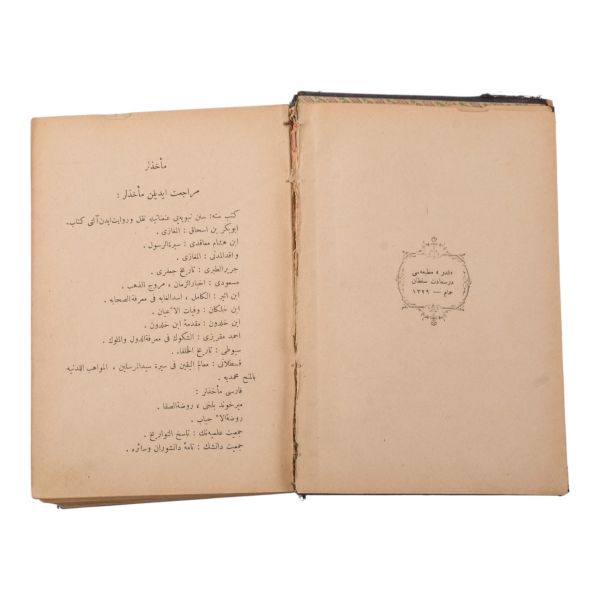 مأخذلر
مراجعت ایدیلن مأخذلر :
كتب سته : سنن نبویه‌یی عنعناتیله نقل وروایت ایدن آلتی كتاب .
ابوبكر بن اسحاق : المغازی .
ابن هشام معافدی : سیرةالرسول .
واقدالمدنی : المغازی .
جریرالطبری : تاریخ جعفری .
مسعودی : اخبارالزمان ، مروج الذهب .
ابن اثیر : الكامل ، اسدالغابه فی معرفةالصحابه .
ابن خلكان : وفیات الاعیان .
ابن خلدون : مقدمة ابن خلدون .
احمد مقریزی : الشكوك فی معرفةالدول والملوك .
سیوطی : تاریخ الخلفاء .
قسطلانی : معالم الیقین فی سیرة سیدالمرسلین ، المواهب اللدنیه
بالمنح محمدیه .
فارسی مأخذلر :
میرخوند بلخی ، روضةالصفا .
روضةالاحباب .
جمعیت علمیه‌نك : ناسخ التواریخ .
جمعیت دانشك : نامهٔ دانشوران وسائره .
مطبعه‌سی
درسعادت سلطان
حمام — ١٣٢٩